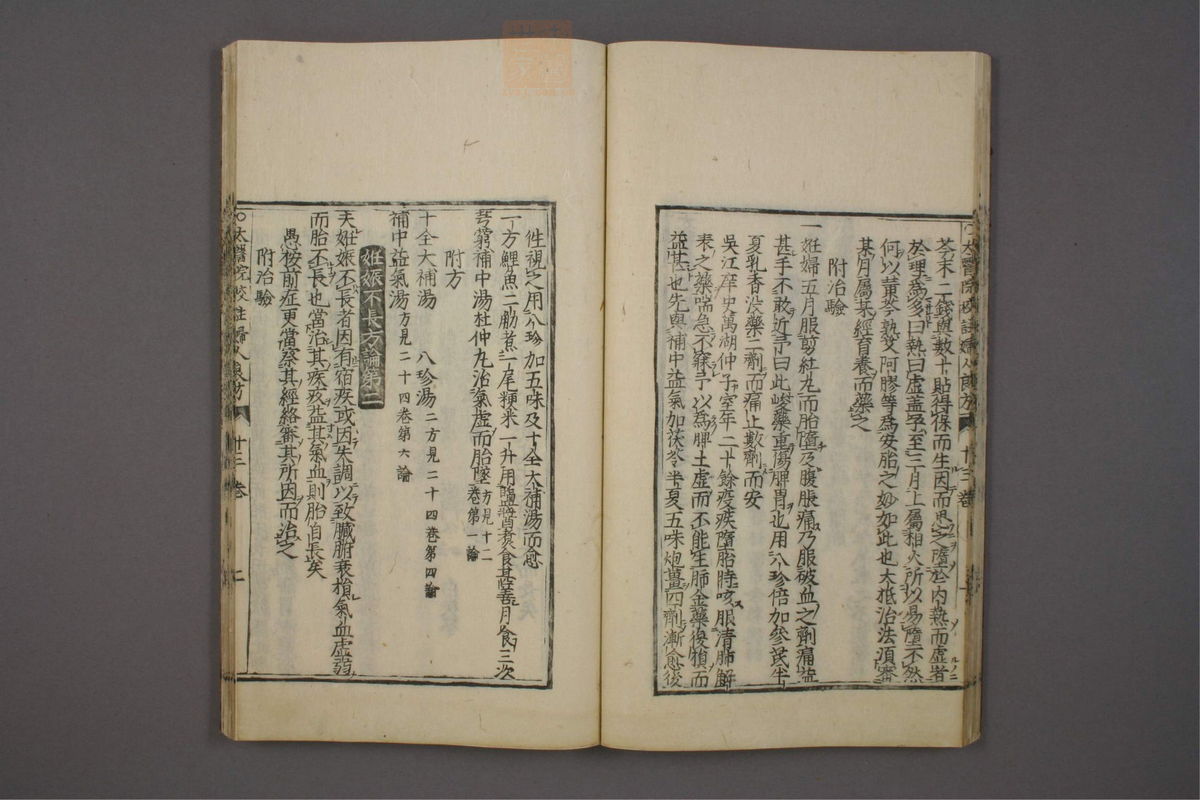 芩末二錢與數十貼得保而生因而思之墮於内熱而虚者
於理爲多曰熱曰虚盖孕至三月上屬相火所以易墮不然
何以黄芩熟艾阿膠等爲安胎之妙如此也大抵治法須審
某月屬某經育養而藥之
附治驗
一姙婦五月服剪紅丸而胎墮及腹脹痛乃服破血之劑痛益
甚手不敢近予曰此峻藥重傷脾胃也用八珍倍加參茋半
夏乳香没藥二劑而痛止數劑而安
吳江庠史萬湖仲子室年二十餘疫疾墮胎時咳服清肺解
表之藥喘急不寐予以爲脾土虚而不能生肺金藥復損而
益甚也先與補中益氣加茯苓半夏五味炮薑四劑漸愈後
太醫院校註婦人良方 十三卷
徃視之用八珍加五味及十全大補湯而愈
一方鯉魚二觔煮一庠粳米一升用鹽醬煮食甚善月食三次
芎窮補中湯杜仲丸治氣虚而胎墜方見十二卷第一論
附方
十全大補湯 八珍湯二方見二十四卷第四論
補中益氣湯方見二十四卷第六論
姙娠不長方論第二
夫姙娠不長者因有宿疾或因失調以致臟腑衰損氣血虚弱
而胎不長也當治其疾疢益其氣血則胎自長矣
愚按前症更當察其經絡審其所因而治之
附治驗
太醫院校註婦人良方 十三卷 二